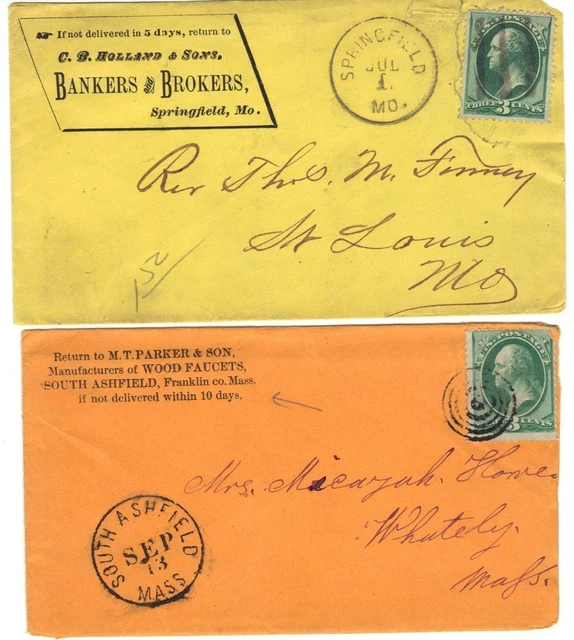 ☞ If not delivered in 5 days, return to
C. B. HOLLAND & SONS,
BANKERS AND BROKERS,
Springfield, Mo.
SPRINGFIELD
JUL
1
MO.
U.S. POSTAGE
THREE 3 CENTS
Rev Thos. M. Finney
St Louis
Mo
152
Return to M. T. PARKER & SON,
Manufacturers of WOOD FAUCETS,
SOUTH ASHFIELD, Franklin co. Mass.
if not delivered within 10 days.
U.S. POSTAGE
3 CENTS
Mrs. Micajah. Howe
Whately.
Mass.
SOUTH ASHFIELD
SEP
13
MASS